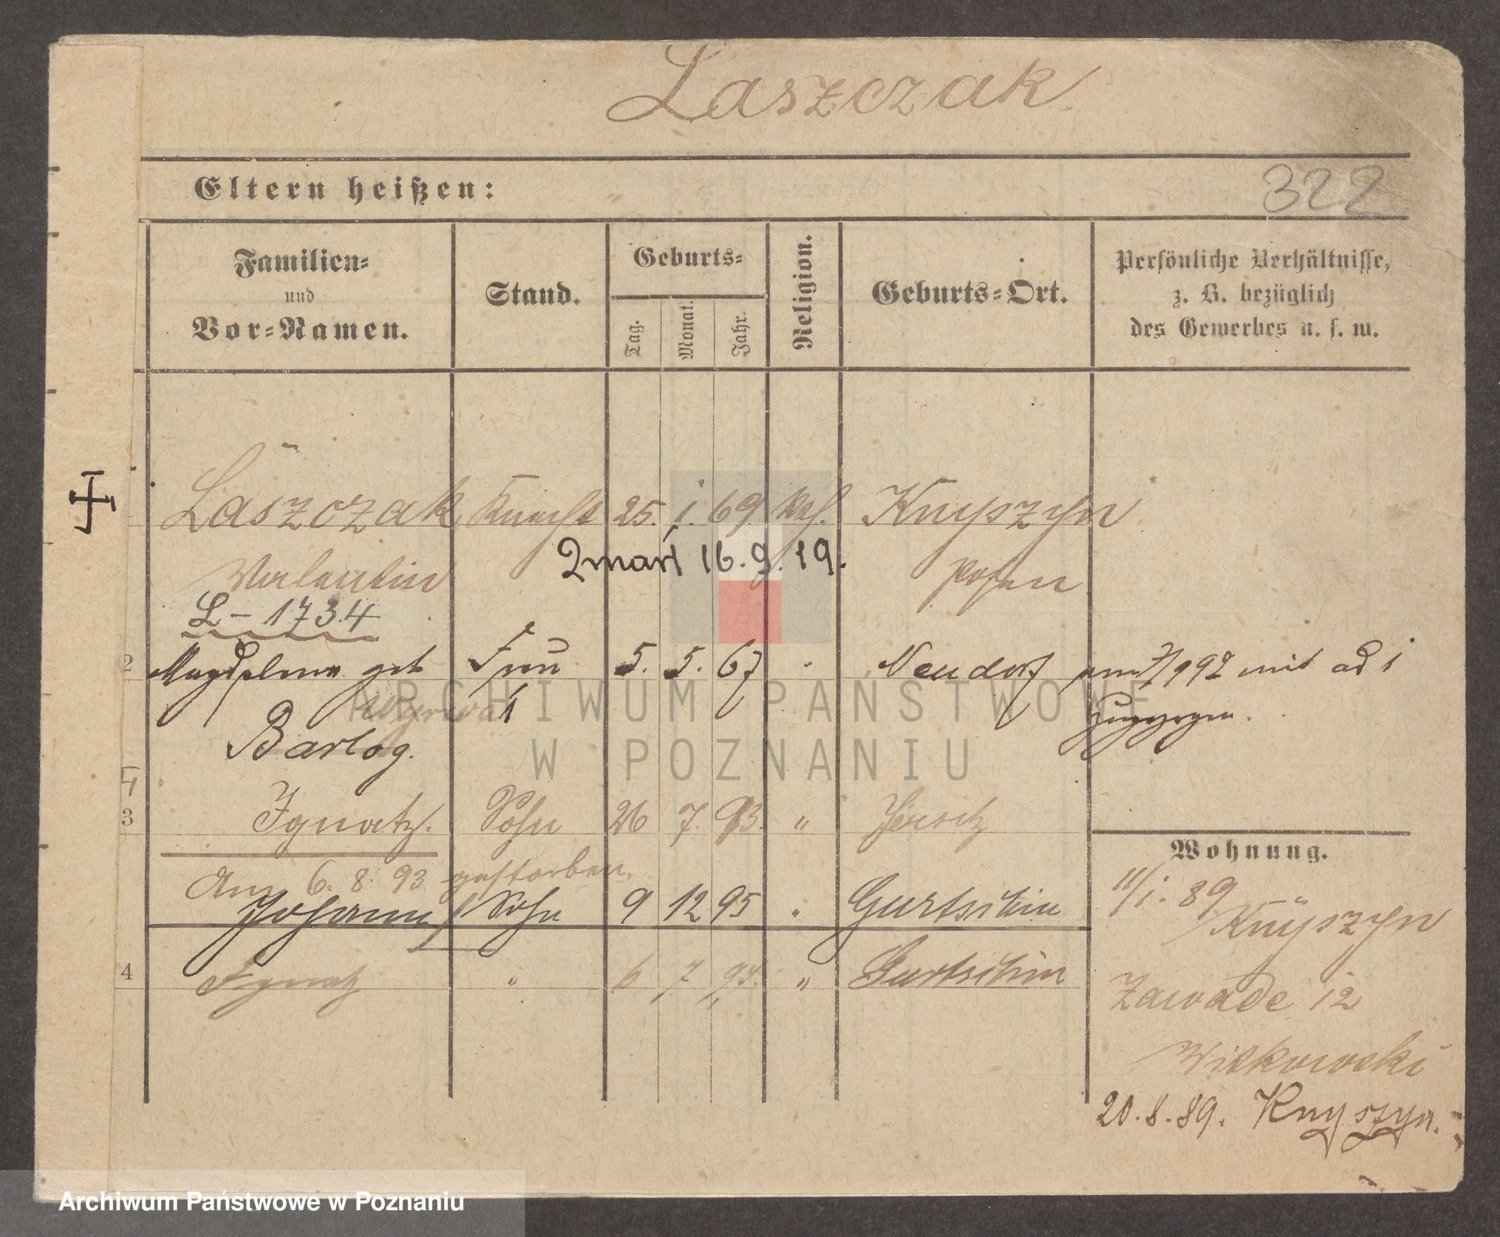 Laszczak
Eltern heißen:
322
Familien-
und
Vor-Namen.
Stand.
Geburts-
Tag.
Monat.
Jahr.
Religion.
Geburts-Ort.
Persönliche Verhältnisse,
z. B. bezüglich
des Gewerbes u. s. w.
Laszczak Knecht 25. 1. 69 kth. Knyszyn
Valentin Posen
Zmarł 16.9.19.
L - 1734
2 Magdalena geb Frau 5. 5. 67 " Neudorf mit ad 1
zugezogen.
Bartog.
3 Ignatz. Sohn 26 7. 93. " Jersitz
Am 6. 8. 93 gestorben.
Johann Sohn 9 12 95 " Gurtschin
4 Ignatz " 6 7 94. " Gurtschin
Wohnung.
11/1. 89
Knyszyn
Zawade 12
Witkowski
20.8.89. Knyszyn.
ARCHIWUM PAŃSTWOWE
W POZNANIU
Archiwum Państwowe w Poznaniu